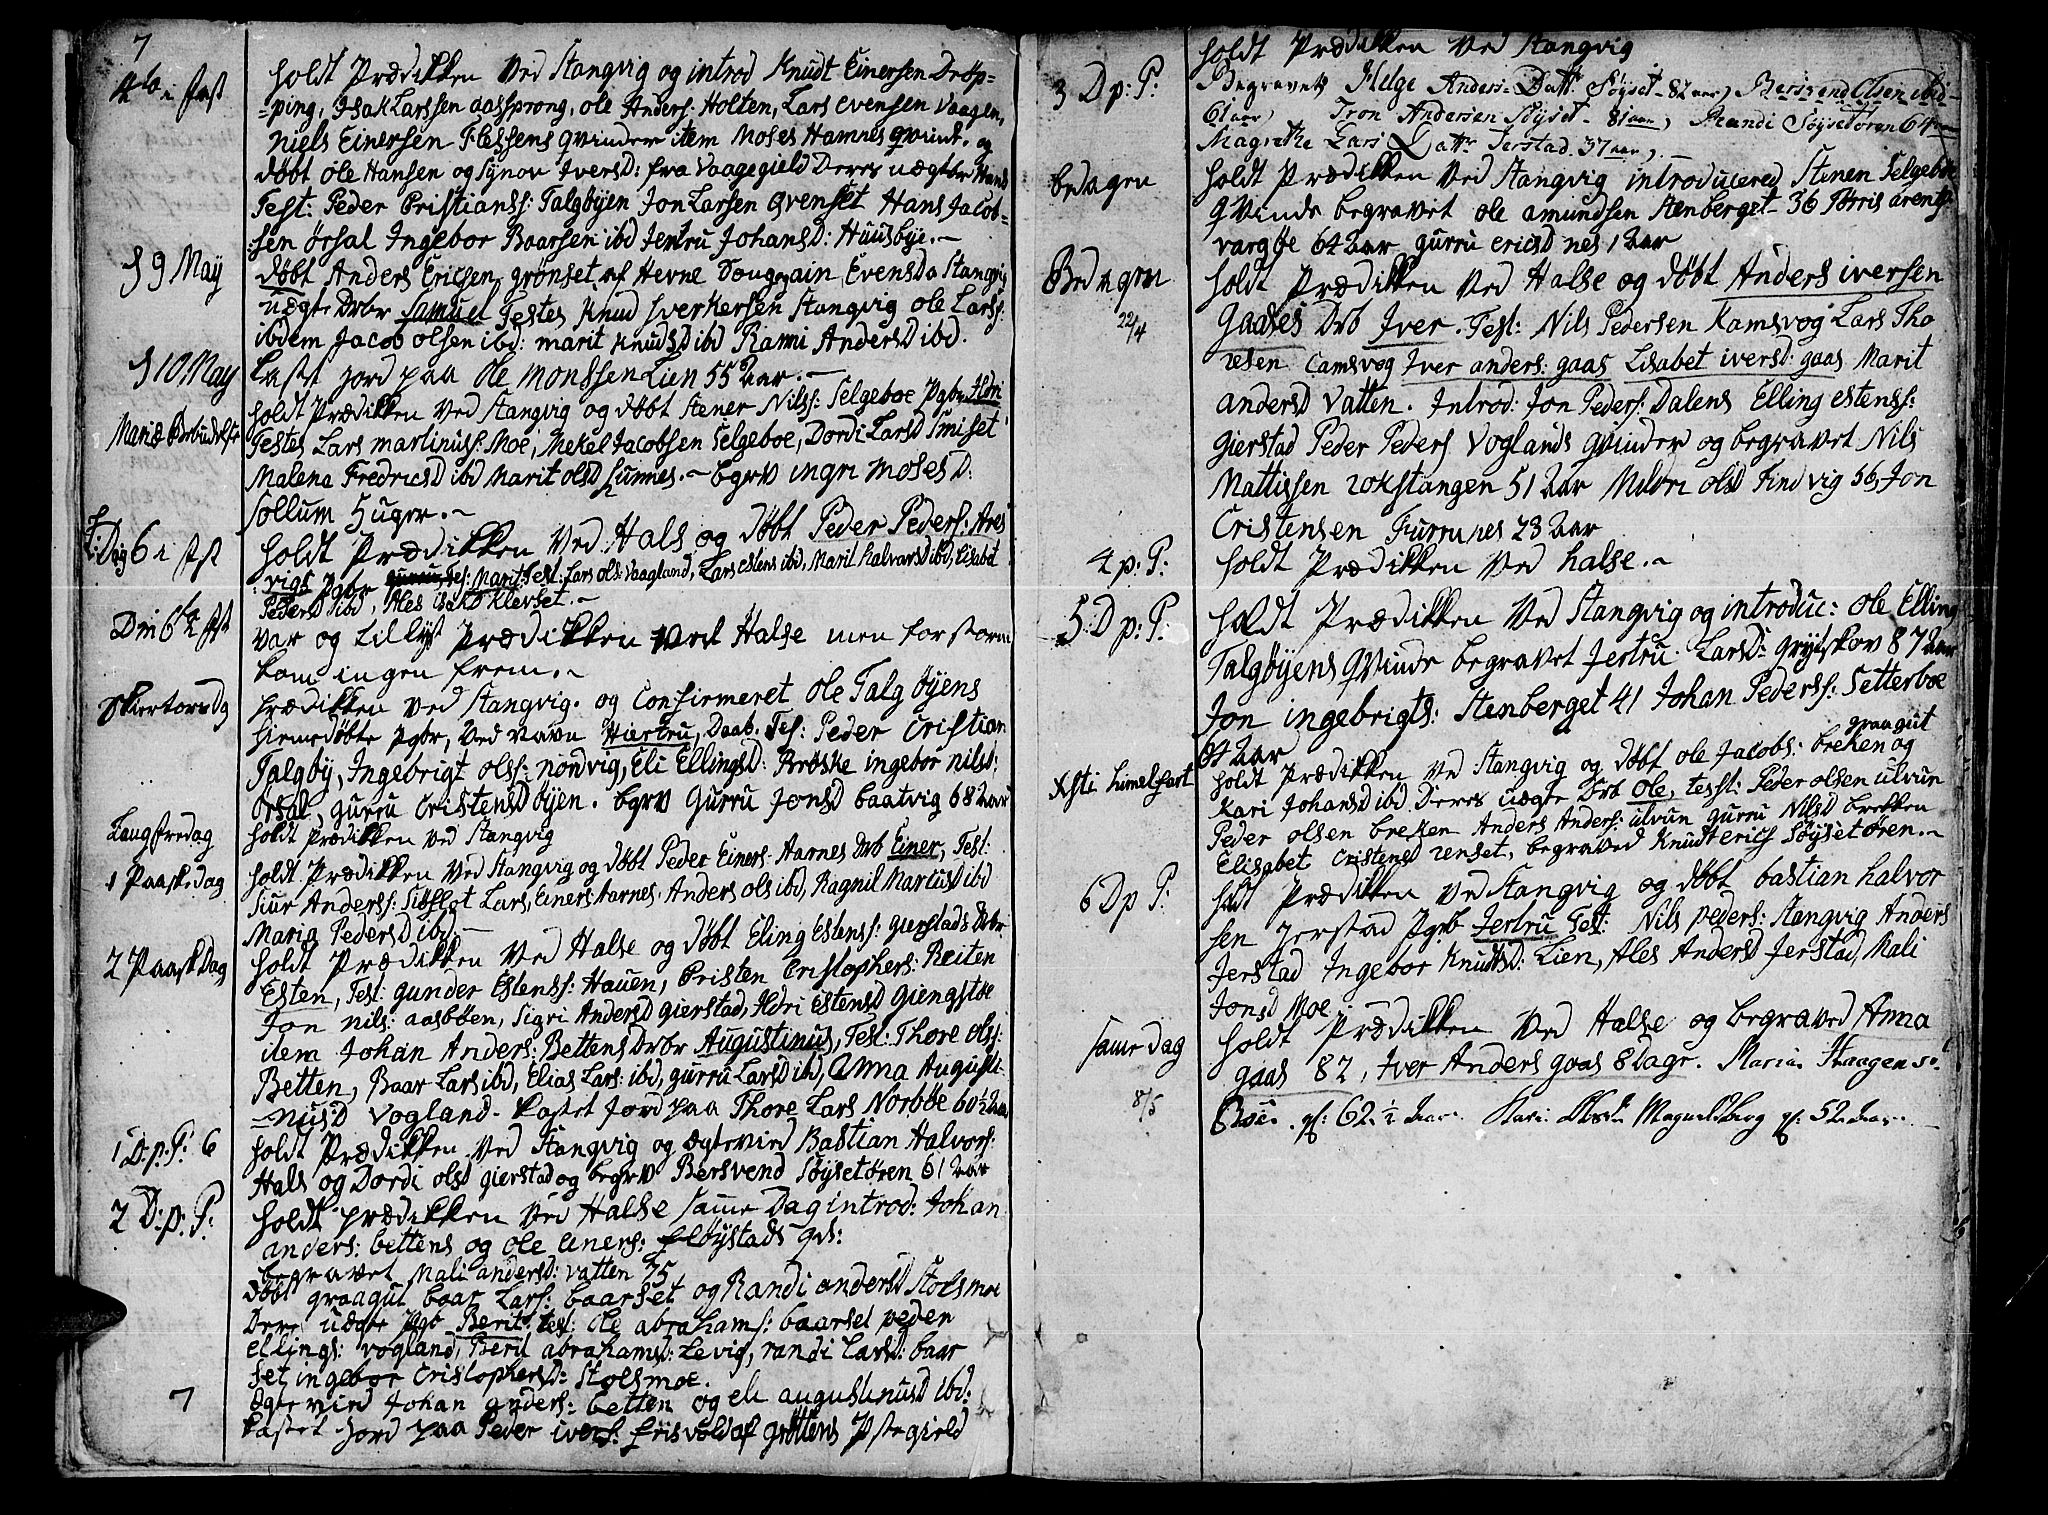 7
4de i fast holdt Prædikken Ved Stangvig og introd Knudt Einersen Dröp-
=ping, Isak Larssen aassprong, ole Anders: Holten, Lars evensen Vaagen,
Niels Einersen Flessens qvinder item Moses Hamnes qvinde. og
döbt ole Hansen og Synov Iversd: fra Vaagegield Deres uægte
Test: Peder Cristianss: Talgöyen Jon Larsen Qvenset Hans Jacob-
:sen örsal Ingebor Baarsen ibd Jertru Johansd: Huusbye.-
9 May döbt Anders Ericsen grönset af Hevne Evensd Stangvig
uægte Drbr Samuel Testes Knud Sverkersen Stangvig ole Larss:
ibdem Jacob olsen ibd: marit Knudsd ibd Ranni Andersd ibd.
10 May kast jord paa ole Monssen Lien 55 aar.-
holdt Prædikken Ved Stangvig og döbt Stener Nilss: Selgeboe Pgbr Ildri
Mariæ Bebudelse Testes Lars martinuss: Moe, Mekel Jacobsen Selgeboe, Dordi Larsd Smiset
Malena Fredricsd ibd Marit olsd Sunnes.- bgrv ingri Mosesd:
Sollum 5 uger.-
Dag 6 i fst holdt Prædikken Ved Hals og döbt Peder Peders: Ares
vigs Pgbr Marit Test: Lars ols: Vaagland, Lars estens ibd, Marit halvarsd ibd, Lisabet
Pedersd ibd, Ales isaksd Klevset.-
Din 6te fst var og Lillyst Prædikken ved Halse men for storm
kom ingen frem.-
Skiertorsdg Prædikken ved Stangvig. og Confirmeret ole Talgöyens
hiemedöbte Pgbr, Ved navn Hiertru, Daab. Tes: Peder Cristian
Talgöy, Ingebrigt olss: nordvig, Eli Ellingsd: Bröske ingebor nilsd:
Örsal, gurru Cristensd öyen. bgrv Gurru Jonsd baatvig 68 aar
Langfredag holdt Prædikken Ved Stangvig
1 Paaskedag holdt Prædikken Ved Stangvig og döbt Peder Einers: Aarnes Drb Einer, Test:
Siur Anderss: Siöflot Lars, Einers Aarnes, Anders ols ibd, Ragnil Marcusd ibd
Maria Pedersd ibd.-
2 Paask Dag holdt Prædikken Ved Halse og döbt Eling Estenss: Gierstads Drbr
Esten, Test: gunder Estenss: Hauen, Cristen Cristophers: Reiten
Jon nils: aasböen, Sigri Andersd gierstad, Ildri Estensd Giengstöe
item Johan Anders: Bettens Drbr Augustinus, Test: Thore ols:
Betten, Baar Lars ibd, Elias Lars: ibd, gurru Larsd ibd, Anna Augusti
=nusd Vogland- kastet jord paa Thore Lars Norböe 60½ aar
1 D:p:P: 6 holdt Prædikken Ved Stangvig og ægtevied Bastian Halvors:
Hals og Dordi olsd gierstad og begrv Bersvend Söysetören 61 aar
2 D:p:P: holdt prædikken Ved Halse samme Dag introd: Johan
anders: bettens og ole Einers: flöystads qd:
begravet Mali andersd: vatten 75
döbt graagut baar Lars: baarset og Randi andersd Stolsmoe
Deres uægte Pgb Berit: test: ole abrahams: baarset peder
ellings: vogland, Beril abrahamsd: Levig, randi Larsd: baar
set ingebor Cristophersd: Stolsmoe.
7 ægtevied Johan anders: betten og eli augustinusd ibd:
kastet jord paa Peder ivers: Erisvold af gröttens Pstegield
holdt Prædikken Ved Stangvig
3 D p: P: Begravet Helge Anders: Dattr Söyset- 82 aar, Bersvend Olsen ibid-
61 aar, Tron Andersen Söyset- 81 aar, Randi Söysetören 64 aar
Magrethe Lars Dattr Jerstad. 37 aar.-
bedagen holdt Prædikken Ved Stangvig introducered Stenen Selgeboe
qvinde begravet ole amundsen Stenberget- 36 Pörris arents
vargöe 64 aar gurru ericsd nes 1 aar
Bedagen holdt Prædikken Ved Halse og döbt Anders iversen
22/4 Gaases Drb Iver. Test: Nils Pedersen Kamsvog Lars Tho
resen Camsvog Iver anders: gaas Lisabet iversd: gaas Marit
andersd Vatten. Introd: Jon Peders: Dalens Elling estenss:
gierstad Peder Peders Voglands qvinder og begravet Nils
Mattissen rokstangen 51 aar Mildri olsd Find vig 56, Jon
Cristensen Furrunes 23 aar
4 p: P: holdt Prædikken Ved halse.-
5: D p: P: holdt Prædikken Ved Stangvig og introduc: ole Elling
Talgöyens qvinde begravet Jertru Larsd: grytskov 87 aar
Jon ingebrigts: Stenberget 41 Johan Pederss: Setterboe
64 aar graagut
Xsti himelfart holdt Prædikken Ved Stangvig og döbt ole Jacobs: breken og
Kari Johansd ibd deres uægte Drb Ole, test: Peder olsen ulvun
Peder olsen breken Anders Anders: ulvun gurru Nilsd brekken
Elisabet Cristensd renset, begraved Knudt erics Söysetören.-
6 D p P: holdt Prædikken ved Stangvig og döbt bastian halvor
sen jerstad Pgrb Jertru Test: Nils peders: Stangvig Anders
Jerstad Ingebor Knudtsd: Lien, Ales Andersd Jerstad, Mali
Jonsd Moe
Samedag holdt Prædikken Ved Halse og begraved Anna
gaas 82, Iver Anders gaas 8 Dage. Maria
8/5 62½ Aar. Kari Olsdtr Magnildberg gl: 52 Aar